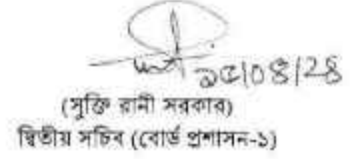 ১৫/০৪/২৪
(সুক্তি রানী সরকার)
দ্বিতীয় সচিব (বোর্ড প্রশাসন-১)